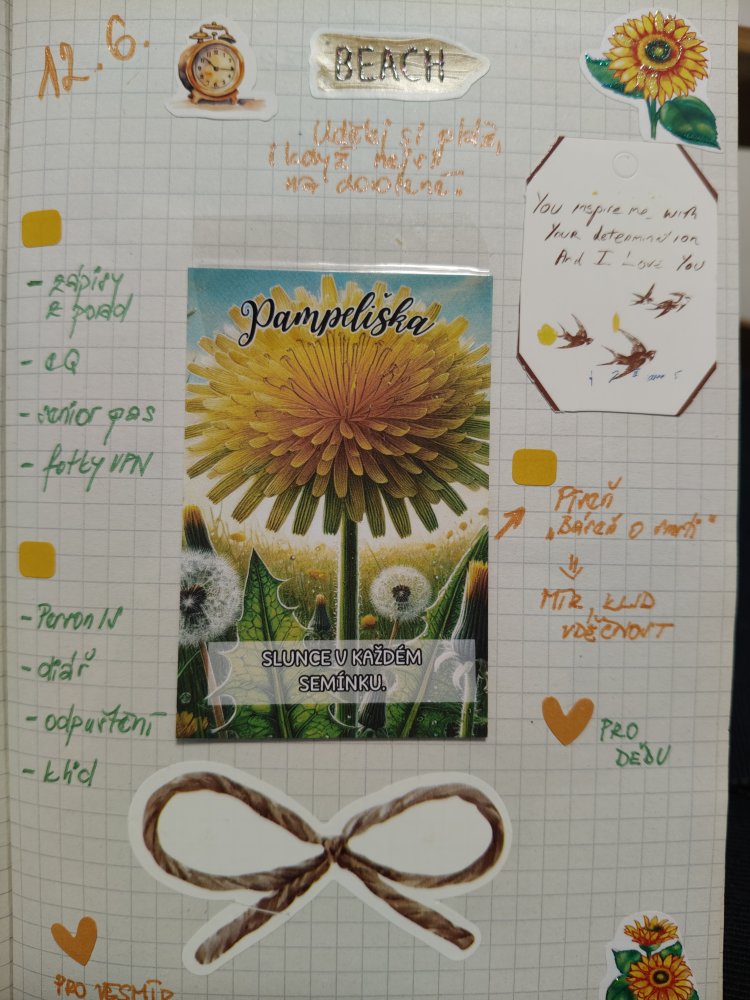 12.6.
BEACH
Udělej si pláž,
i když nejsi
na dovolené.
You inspire me with
Your determination
And I Love You
- zápisy
z porad
- CQ
- senior pas
- fotky VPN
Pampeliška
SLUNCE V KAŽDÉM
SEMÍNKU.
Píseň
"Báseň o
MÍR, KLID
VDĚČNOST
PRO
DĚDU
- diář
- odpuštění
- klid
PRO VESMÍR